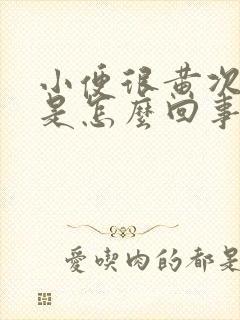 小便很黄次
是怎麼回事
愛喫肉的都是